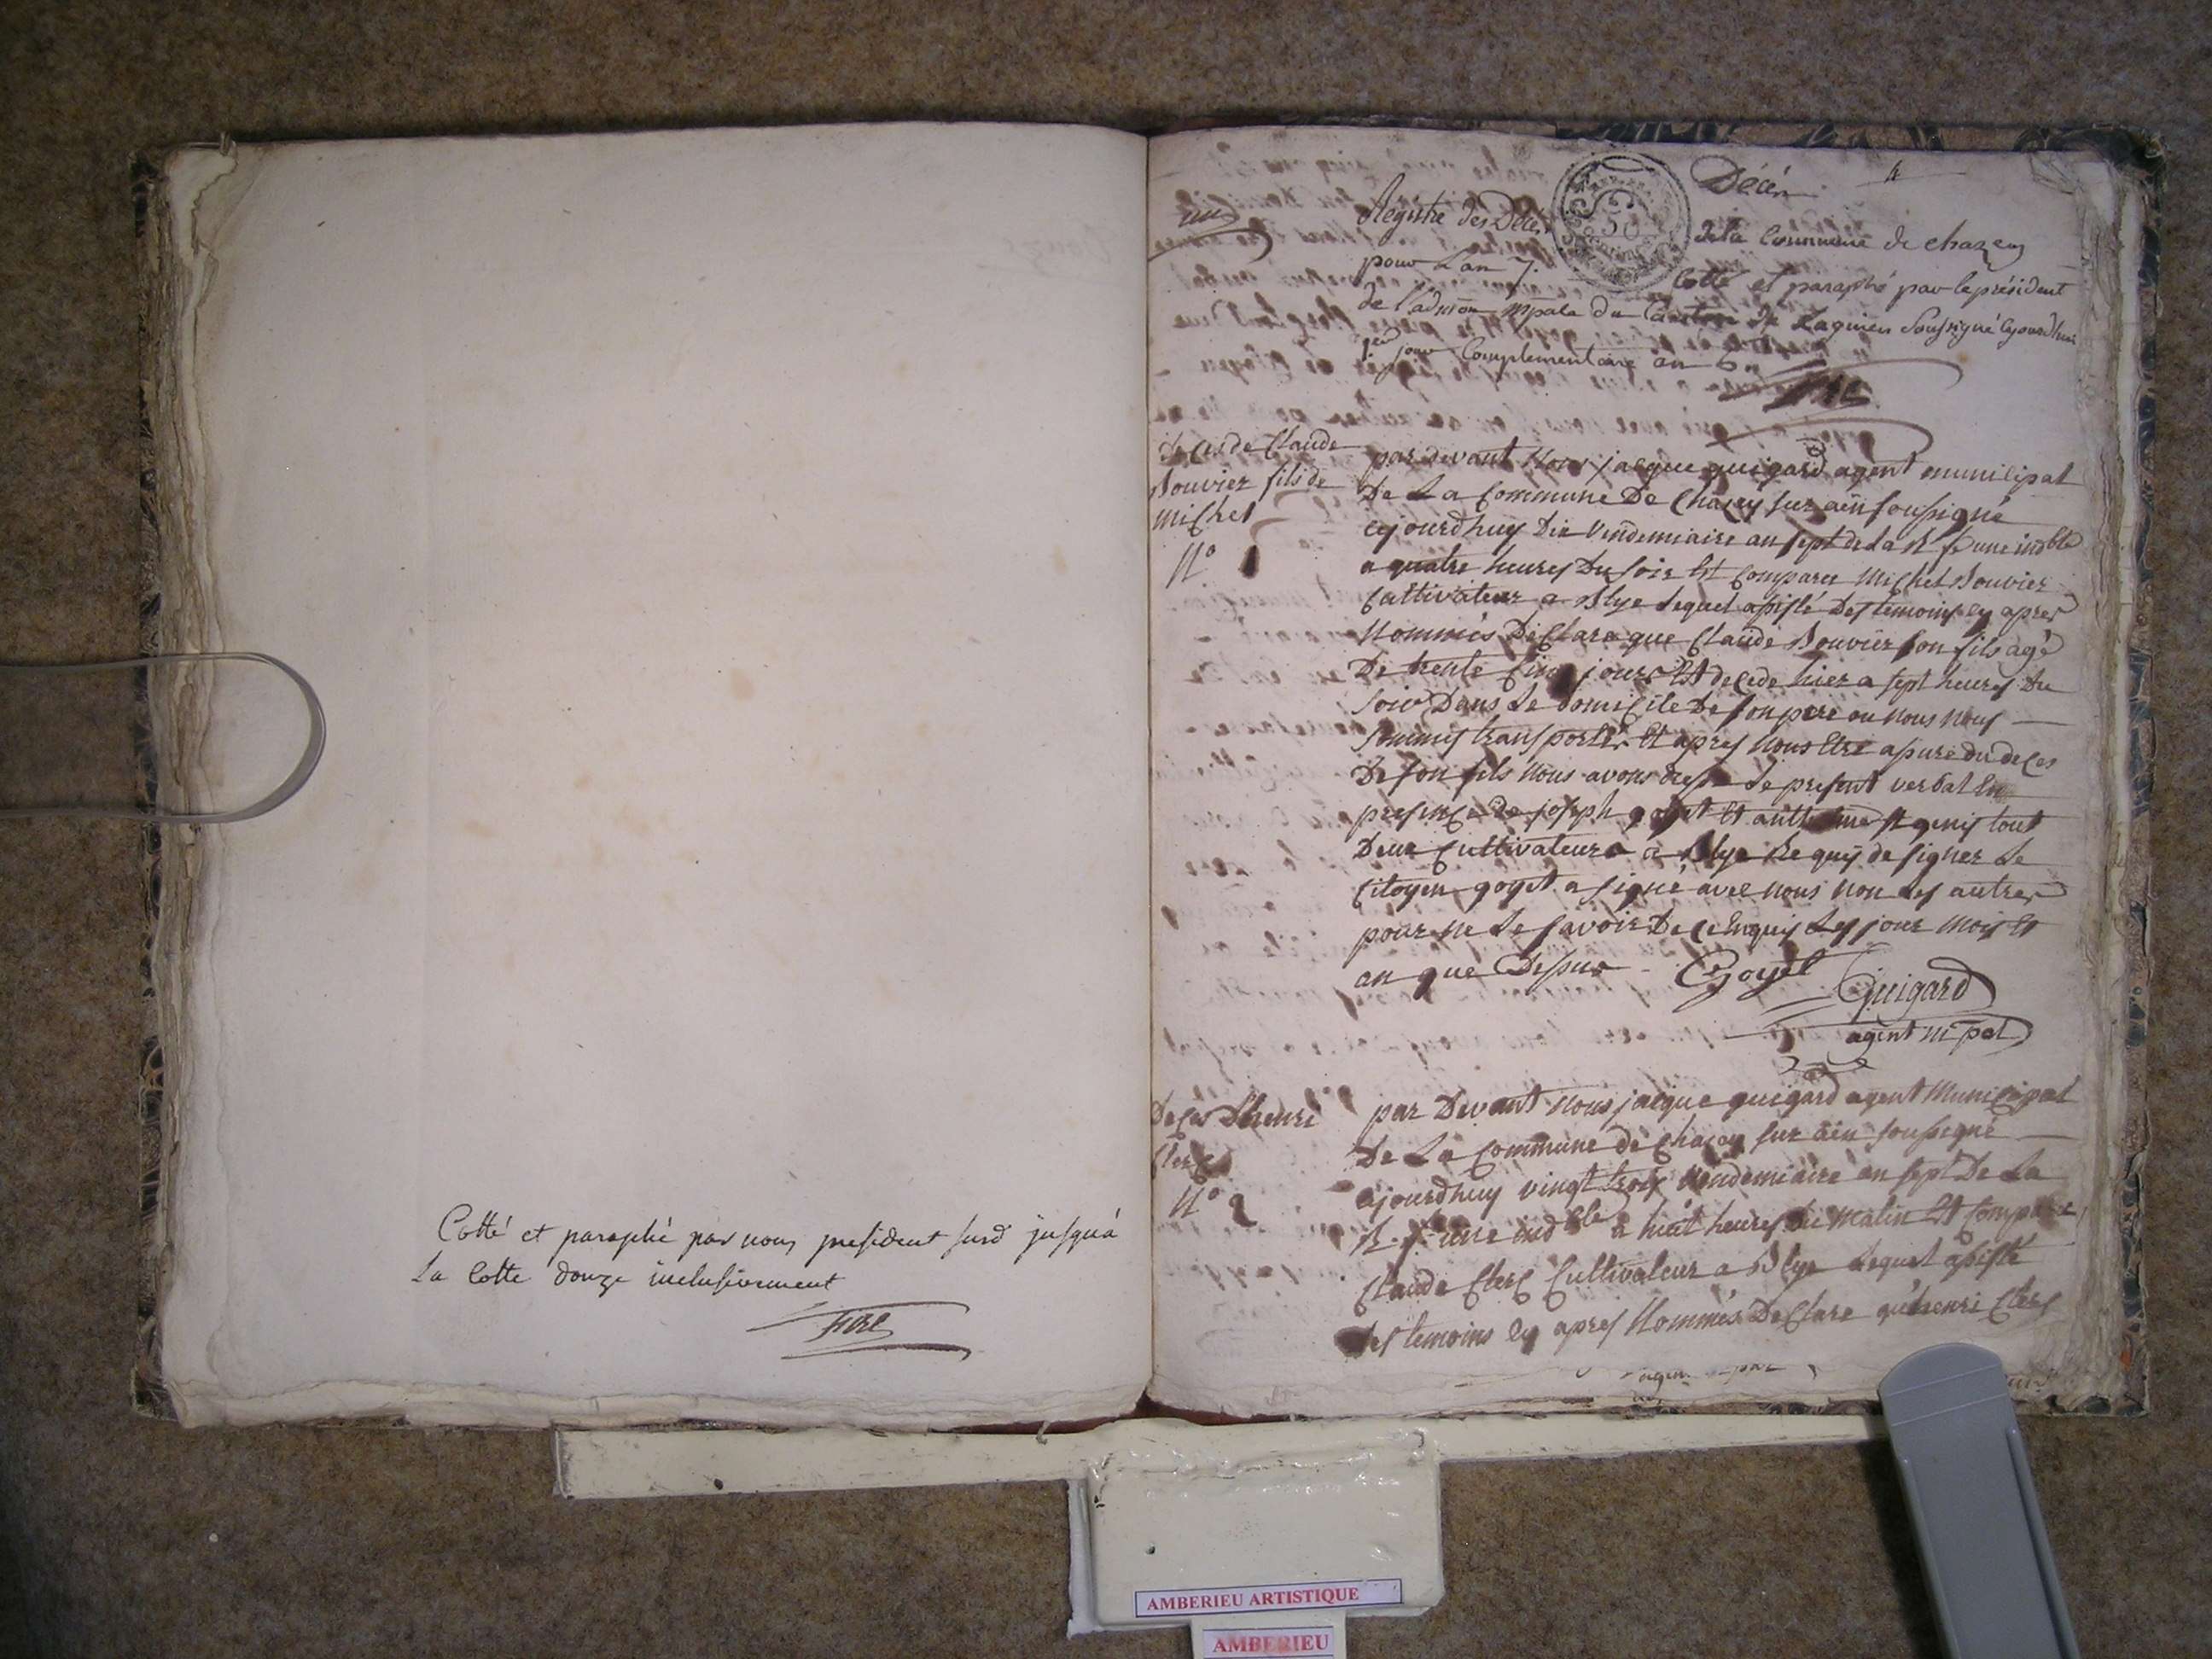 Cotté et paraphé par nous president susd jusqu'a
La Cotte douze inclusivement
Décès
Registre des Décès
de la Commune de chazey
pour L'an 7.
Cotté et paraphé par le président
de l'admon mpale du Canton de Lagnieu Soussigné cejourdhui
1er jour Complementaire an 6
deces de Claude
Bouvier fils de
michel
N° 1
par devant Nous jacque guigard agent municipal
De La Commune De Chazey sur ain soussigné
cejourdhuy Dix Vendemiaire an sept de la R fse une indble
a quatre heures Du soir Est Comparu Michel Bouvier
Cultivateur a Blye Lequel assisté Des temoins cy apres
Nommés Declare que Claude Bouvier son fils agé
De trente cinq jours Est decede hier a sept heures Du
soir Dans Le domicile De son pere ou nous nous
sommes transportés Et apres nous Etre assuré du deces
De son fils nous avons dressé Le present verbal En
presence de joseph goyet Et st genis tout
Deux Cultivateurs a Blye Requis de signer Le
Citoyen goyet a signé avec nous non Les autres
pour ne Le savoir De ce Enquis Les jour mois Et
an que Dessus Goyet
Guigard
agent m pal
Deces D'henri
Clerc
N° 2
par Devant Nous jacque guigard agent Municipal
De La Commune de Chazey sur ain soussigné
cejourdhuy vingt trois Vendemiaire an sept De La
R f une indble a huit heures du Matin Est Comparu
Claude Clerc Cultivateur a Blye Lequel assisté
des temoins cy apres Nommés Declare qu'henri Clerc
AMBERIEU ARTISTIQUE
AMBERIEU